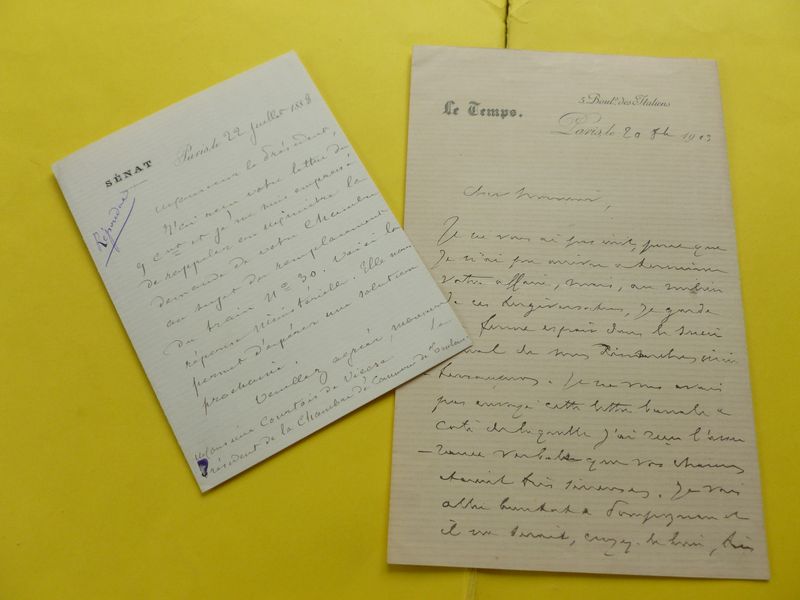 SÉNAT
Paris le 22 juillet 1888
Répondue
Monsieur le Président,
J'ai reçu votre lettre du
9 ct et je me suis empressé
de rappeler au Ministre la
demande de votre Chambre
au sujet du remplacement
du train No 30. Voici la
réponse Ministérielle. Elle nous
permet d'espérer une solution
prochaine.
Veuillez agréer, Monsieur
le
Monsieur Courtois de Viçose
Président de la Chambre de Commerce de Toulouse
Le Temps.
5. Boul.d des Italiens
Paris, le 20 8bre
Cher Monsieur,
Je ne vous ai pas écrit, parce que
je n'ai pu arriver à terminer
votre affaire, mais, au milieu
de ces tergiversations, je garde
ferme espoir dans le succès
final de nos
Je ne vous avais
pas envoyé cette lettre banale à
côté de laquelle j'ai reçu l'assu
-rance verbale que vos chances
étaient très sérieuses. Je vais
aller bientôt à Pompignan et
il me serait, croyez-le bien, très